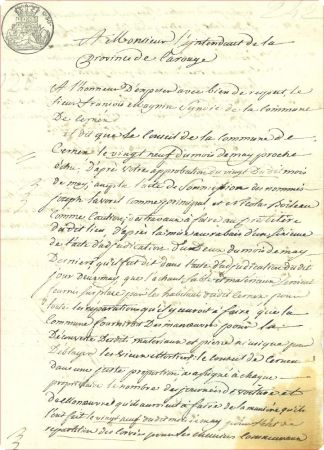 A Monsieur l'jntendant de la
province de Carouge
A l'honneur D'exposer avec bien de respect, le
sieur François Magnin Syndic de la Commune
De Cernex
il dit que le Conseil de la Commune de
Cernex le vingt neuf du mois de may proche
échu, d'après votre approbation du vingt du dit mois
de may, l'acte de Soumission des nommés
Joseph comme principal et Nicolas
Comme Caution, es travaux à faire au presbitère
du dit lieu, d'après la mise au rabais d'un Sixieme
de l'acte d'adjudication d'un Deux du mois de may
Dernier qu'il fut dit dans l'acte d'adjudication du dit
jour deux may, que la chaux, sable et materiaux seroient
sur place par les habitans du dit Cernex pour
toute les reparations qu'il y auroit à faire que la
Commune fourniroit Des manoeuvres pour la
Découverte Desdits materiaux et pierre ainsi que pour
Deblayer les vieux le conseil de Cernex
dans une juste proportion a assigné à chaque
proprietaire le nombre des journées de voiture et
de Manoeuvre qu'ils auroient à faire de la manière qu'ils
l'ont fait le vingt neuf du dit mois de may
repartition des corvés pour les chemins communaux